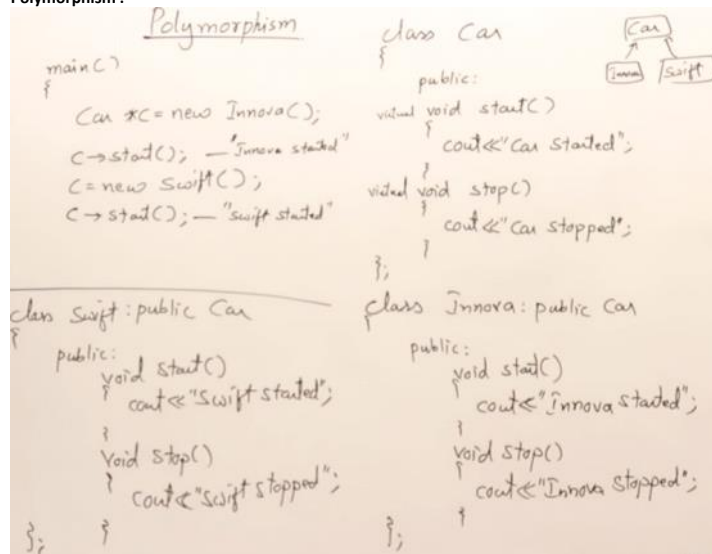 Polymorphism :
Polymorphism
main()
{
Car *C = new Innova();
C→start(); — "Innova started"
C = new Swift();
C→start(); — "Swift started"
class Car
{
public:
virtual void start()
{
cout<<"Car Started";
}
virtual void stop()
{
cout<<"Car Stopped";
}
};
Car
Innova Swift
class Swift : public Car
{
public:
void start()
{
cout<<"Swift Started";
}
void stop()
{
cout<<"Swift Stopped";
}
};
class Innova : public Car
{
public:
void start()
{
cout<<"Innova Started";
}
void stop()
{
cout<<"Innova Stopped";
}
};